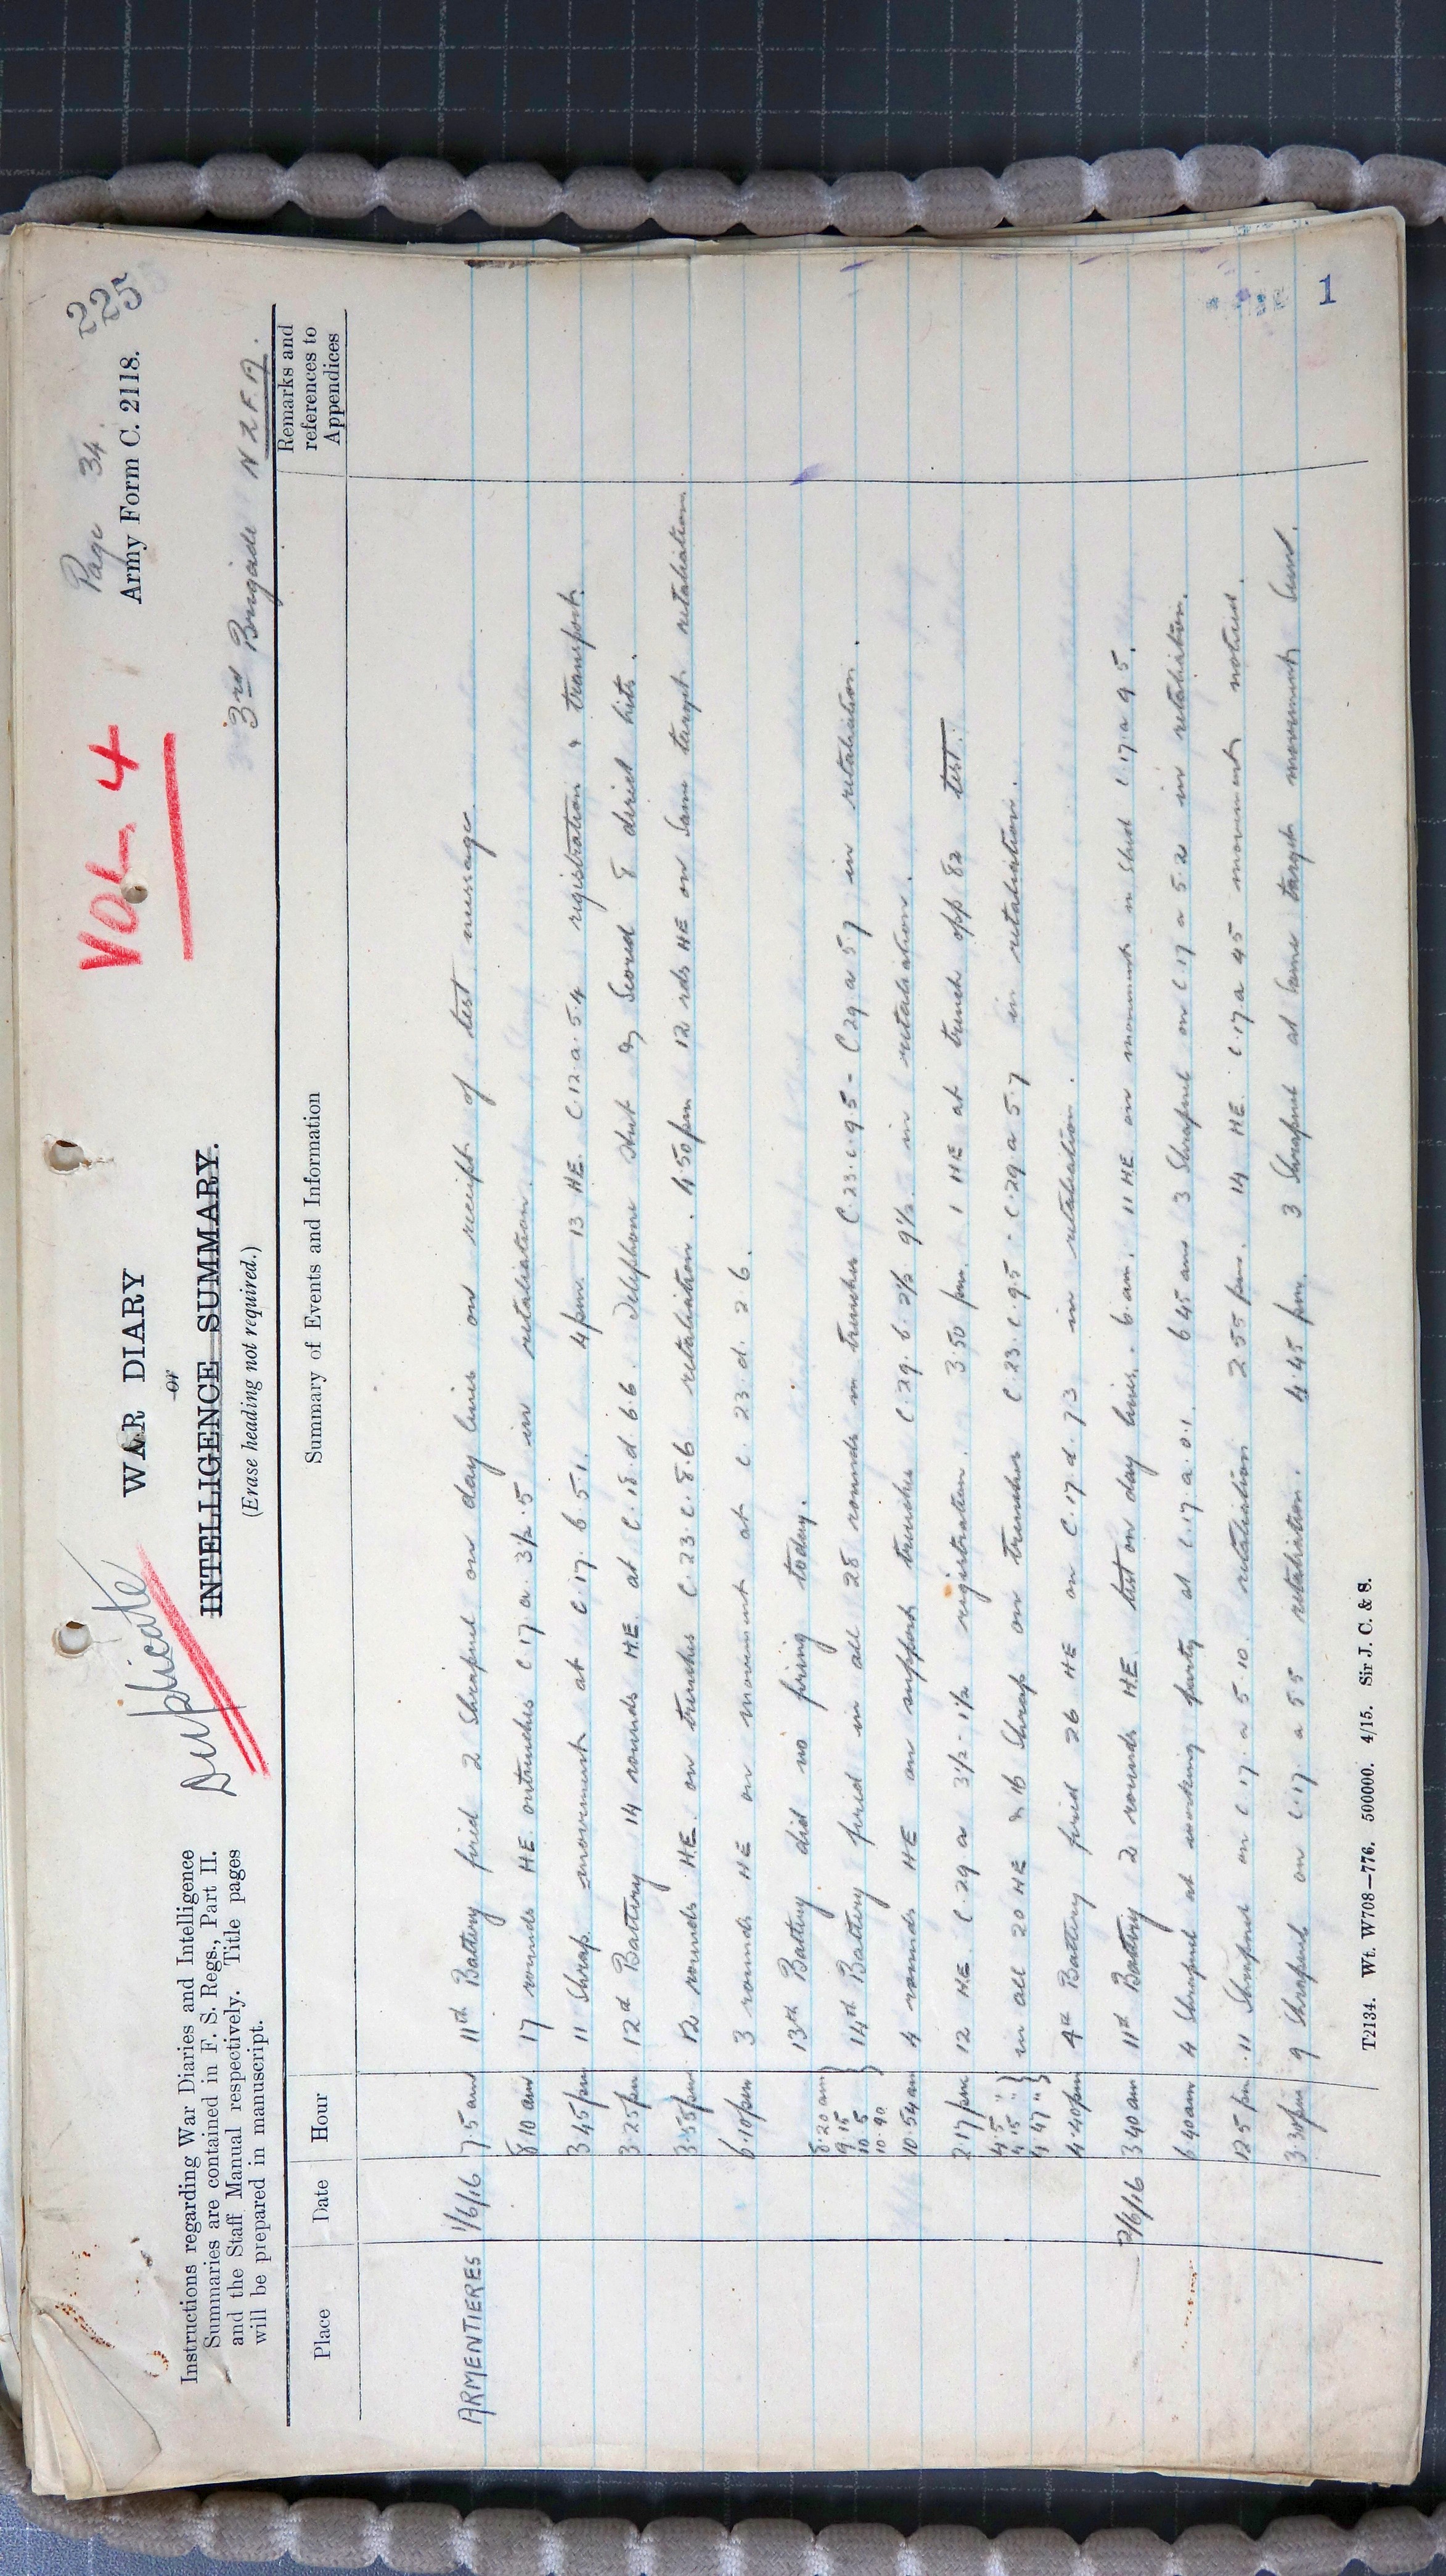 Page 34.
225
Army Form C. 2118.
Duplicate
VOL 4
WAR DIARY
or
INTELLIGENCE SUMMARY.
(Erase heading not required.)
3rd Brigade N Z F A.
Instructions regarding War Diaries and Intelligence
Summaries are contained in F. S. Regs., Part II.
and the Staff Manual respectively. Title pages
will be prepared in manuscript.
Place Date Hour Summary of Events and Information Remarks and references to Appendices
ARMENTIERES 1/6/16 7.5 am 11th Battery fired 2 Shrapnel on day lines on receipt of test message.
8 10 am 17 rounds HE on trenches C 17 a. 3½.5 in retaliation.
3.45 pm 11 Shrap. movement at C 17. b 5.1. 4 pm 13 HE. C.12.a.5.4 registration & transport.
3.25 pm 12th Battery 14 rounds H.E. at C.18.d.6.6. Telephone Hut & Scored 8 direct hits.
3.55 pm 12 rounds HE. on trenches C.23.c.8.6 retaliation. 4.50 pm 12 rds HE on Same target retaliation.
6.10 pm 3 rounds HE on movement at C. 23.d. 2.6.
13th Battery did no firing today.
8.20 am
9.15
10.5
14th Battery fired in all 28 rounds on trenches C.23.c.9.5 - C 29 a 5.7 in retaliation.
10.54 am 4 rounds HE on support trenches C.29.b.2½ 9½ in retaliation.
2.17 pm 12 H.E. C.29 a 3½ - 1½ registration. 3.50 pm. 1 HE at trench opp 82 test.
4.5
4.15 "
4 47 "
in all 20 HE & 16 Shrap on trenches C.23.c.9.5 - C.29 a 5.7 in retaliation.
4.40 pm 4th Battery fired 26 HE on C.17.d.7.3 in retaliation.
2/6/16 3 40 am 11th Battery 2 rounds HE. test on day lines. 6 am. 11 HE on movement in Shed C.17.a 9 5.
6 40 am 4 Shrapnel at working party at C.17.a.0.1. 6 45 am 3 Shrapnel on C.17 a 5.2 in retaliation.
12 5 pm 11 Shrapnel on C.17.a 5 10. retaliation 2 55 pm. 14 HE. C.17.a 45 movement noticed.
3.30 pm 9 Shrapnel on C.17 a 5 5 retaliation. 4.45 pm. 3 Shrapnel at Same target movement Seen.
T2134. Wt. W708—776. 500000. 4/15. Sir J. C. & S.
1